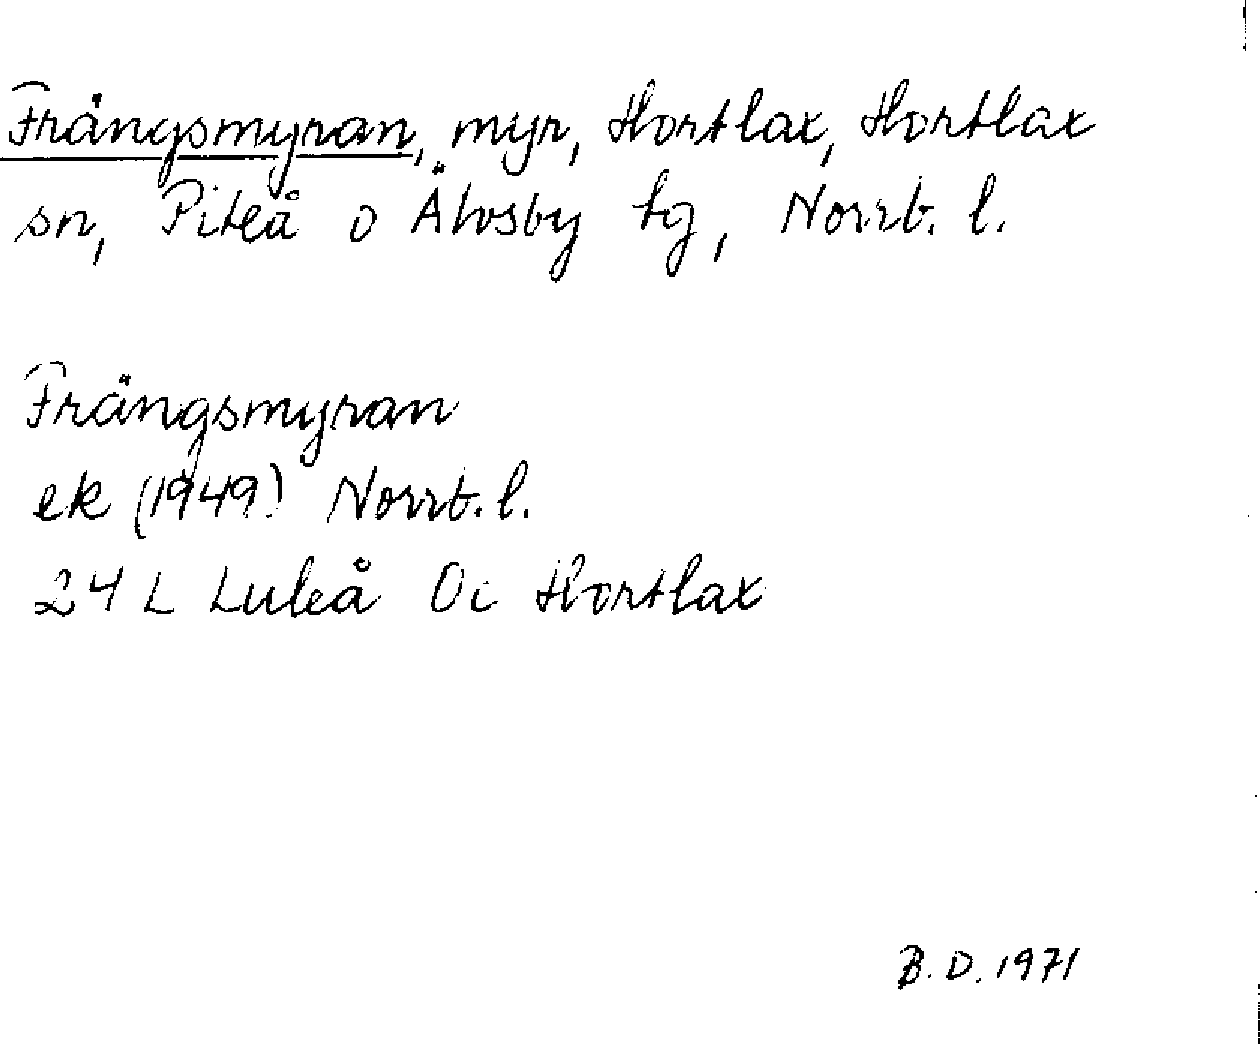 Frängsmyran, myr, Hortlax, Hortlax
sn, Piteå o Älvsby tg, Norrb. l.
Frängsmyran
ek (1949) Norrb. l.
24 L Luleå Oi Hortlax
B. D. 1971